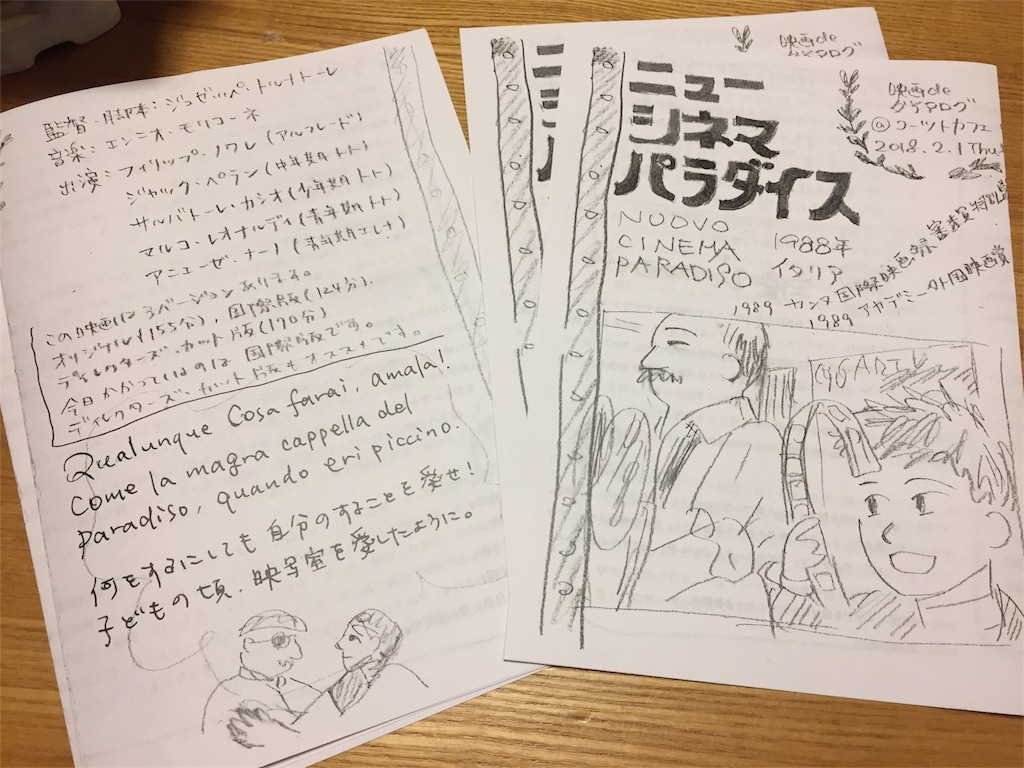 監督・脚本：ジュゼッペ・トルナトーレ
音楽：エンニオ・モリコーネ
出演：フィリップ・ノワレ（アルフレード）
ジャック・ペラン（中年期トト）
サルバトーレ・カシオ（少年期トト）
マルコ・レオナルディ（青年期トト）
アニェーゼ・ナーノ（青年期エレナ）
この映画は3バージョンあります。
オリジナル（155分）、国際版（124分）、
ディレクターズ・カット版（170分）
今日かかっているのは国際版です。
ディレクターズ・カット版もオススメです。
Qualunque Cosa farai, amala!
Come la magra cappella del
paradiso, quando eri piccino.
何をするにしても自分のすることを愛せ！
子どもの頃、映写室を愛したように。
映画de
ダイアログ
ニュー
シネマ
パラダイス
NUOVO
CINEMA
PARADISO
1988年
イタリア
映画de
ダイアログ
@コーツトカフェ
2018.2.1 Thu.
1989 カンヌ国際映画祭 審査員特別賞
1989 アカデミー外国映画賞